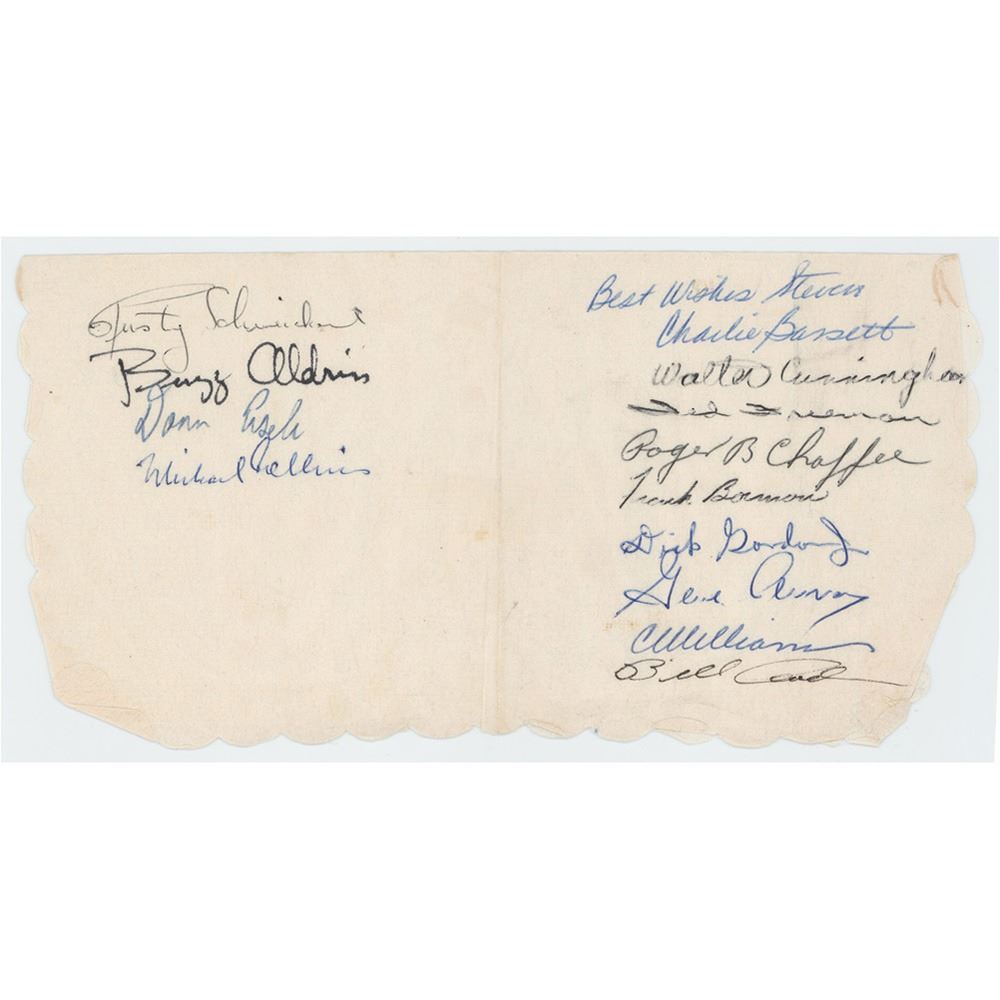 Rusty Schweickart
Buzz Aldrin
Donn Eisele
Michael Collins
Best Wishes Steven
Charlie Bassett
Walter Cunningham
Ted Freeman
Roger B Chaffee
Frank Borman
Dick Gordon Jr
Gene Cernan
CC Williams
Bill